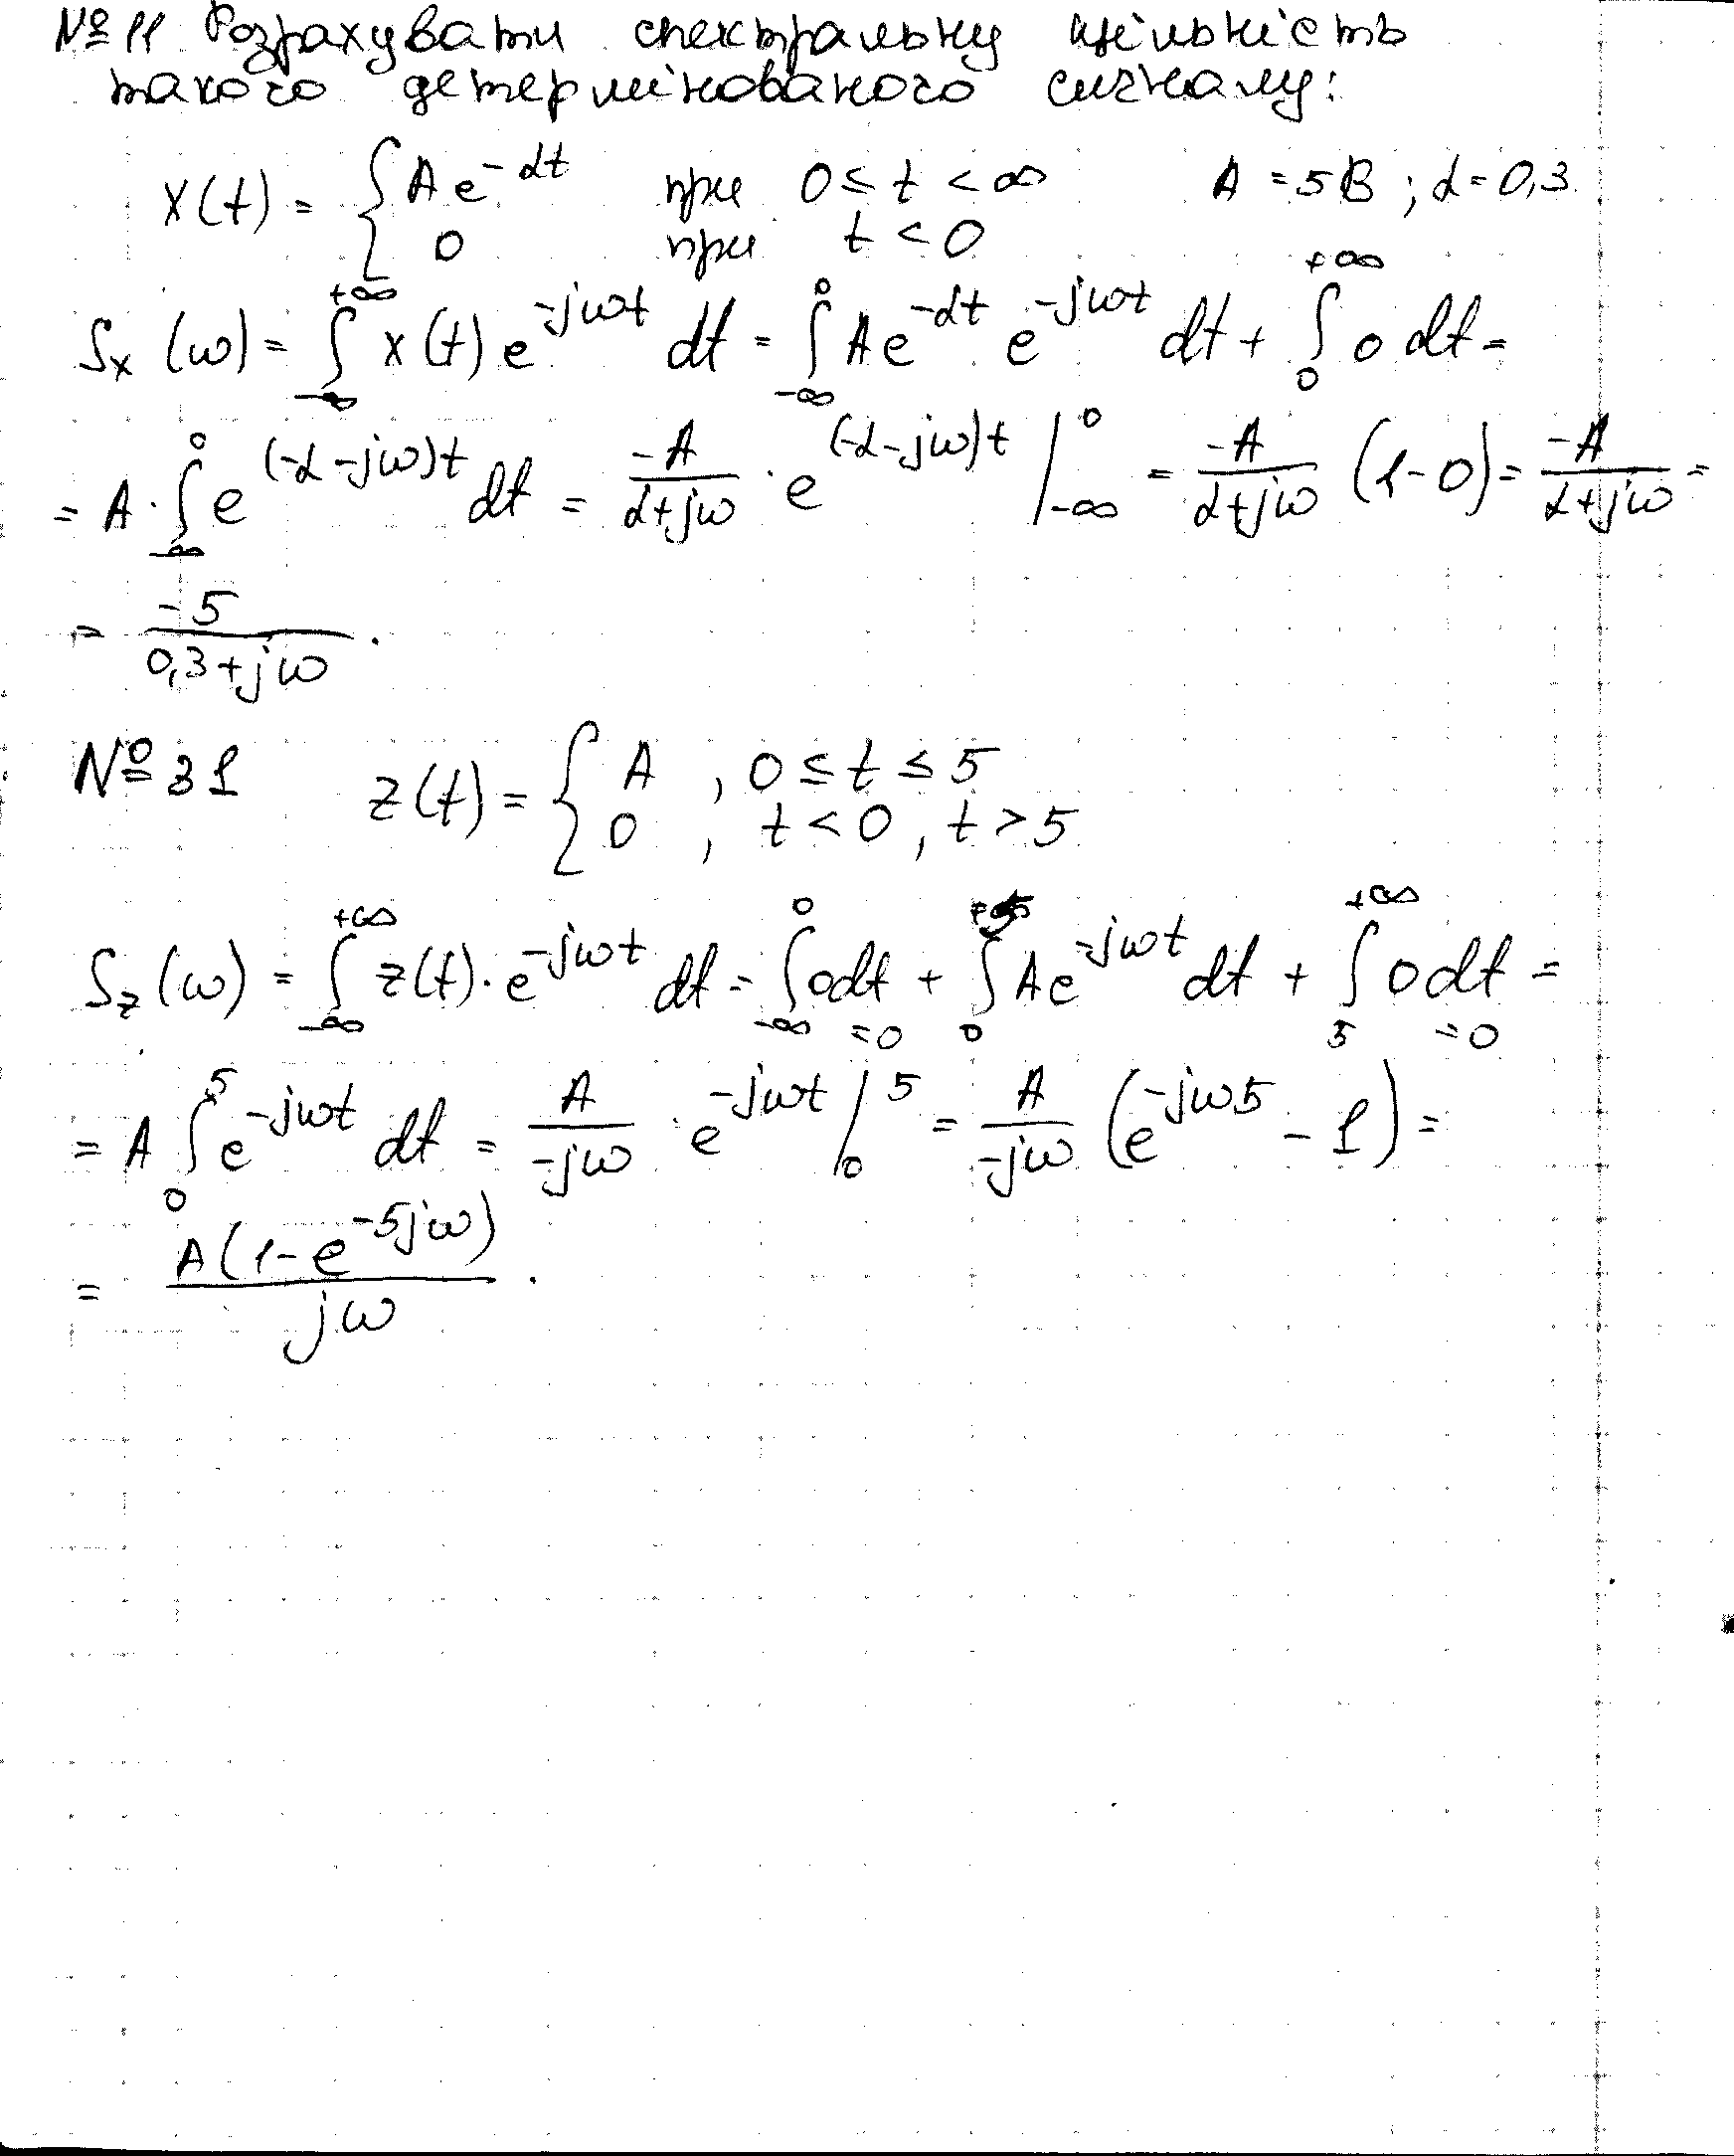 № 11 Розрахувати спектральну щільність
такого детермінованого сигналу:
x(t) = { A e^{-αt} при 0 ≤ t < ∞ A = 5В ; α = 0,3.
0 при t < 0
S_x (ω) = ∫_{-∞}^{+∞} x(t) e^{-jωt} dt = ∫_{-∞}^{0} A e^{-αt} e^{-jωt} dt + ∫_{0}^{+∞} 0 dt =
= A · ∫_{-∞}^{0} e^{(-α-jω)t} dt = \frac{-A}{α+jω} · e^{(-α-jω)t} |_{-∞}^{0} = \frac{-A}{α+jω} (1-0) = \frac{-A}{α+jω} =
= \frac{-5}{0,3+jω} .
№ 31 z(t) = { A , 0 ≤ t ≤ 5
0 , t < 0 , t > 5
S_z (ω) = ∫_{-∞}^{+∞} z(t) · e^{-jωt} dt = ∫_{-∞}^{0} 0 dt + ∫_{0}^{5} A e^{-jωt} dt + ∫_{5}^{+∞} 0 dt =
=0 =0
= A ∫_{0}^{5} e^{-jωt} dt = \frac{A}{-jω} · e^{-jωt} |_{0}^{5} = \frac{A}{-jω} (e^{-jω5} - 1) =
= \frac{A(1-e^{-5jω})}{jω} .